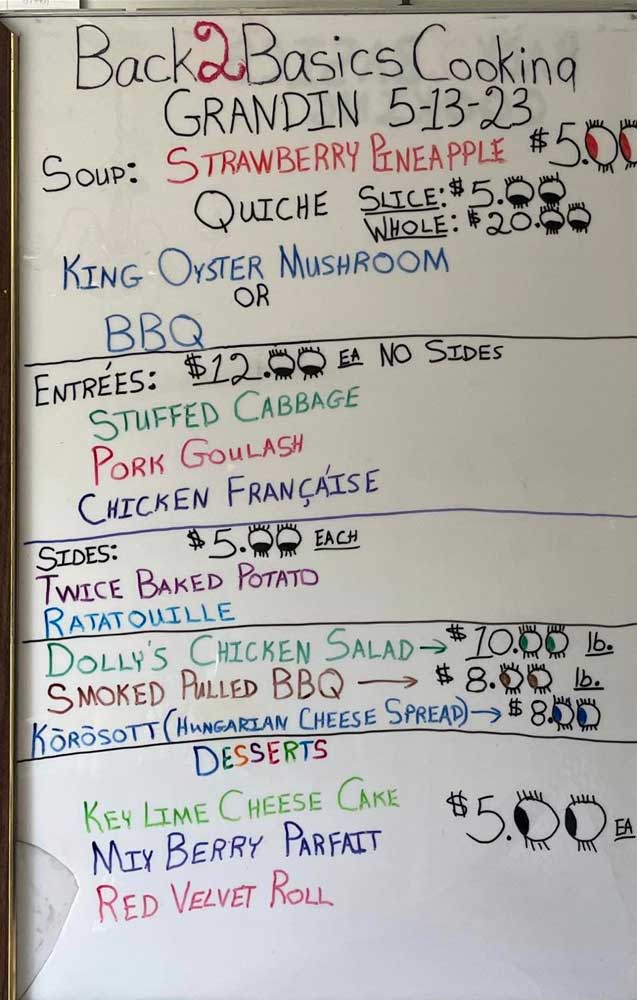 Back2Basics Cooking
GRANDIN 5-13-23
SOUP: STRAWBERRY PINEAPPLE $5.00
QUICHE SLICE: $5.00
WHOLE: $20.00
KING OYSTER MUSHROOM
OR
BBQ
ENTRÉES: $12.00 EA NO SIDES
STUFFED CABBAGE
PORK GOULASH
CHICKEN FRANÇÁISE
SIDES: $5.00 EACH
TWICE BAKED POTATO
RATATOUILLE
DOLLY'S CHICKEN SALAD → $10.00 lb.
SMOKED PULLED BBQ → $8.00 lb.
KÖRÖSOTT (HUNGARIAN CHEESE SPREAD) → $8.00
DESSERTS
KEY LIME CHEESE CAKE
MIX BERRY PARFAIT $5.00 EA
RED VELVET ROLL